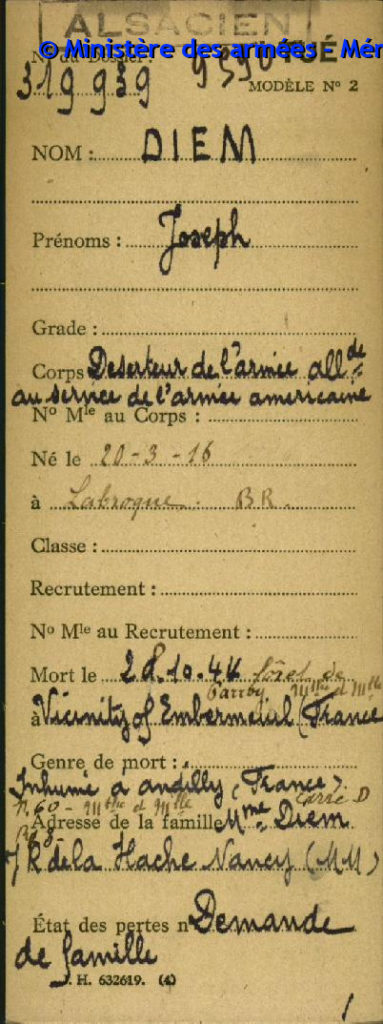 ALSACIEN
© Ministère des armées - Mém
No du Dossier:
319 939
MODÈLE No 2
NOM : DIEM
Prénoms : Joseph
Grade :
Corps Deserteur de l'armée allde
au service de l'armée americaine
No Mle au Corps :
Né le 20-3-16
à Labroque. BR.
Classe :
Recrutement :
No Mle au Recrutement :
Mort le 28.10.44 forêt de
Parroy Mthe et Mlle
à Vicinity of Embermenil (France
Genre de mort :
Inhumé à andilly (France)
n. 60 - Mthe et Mlle Carré D
Adresse de la famille Mme Diem
7 R de la Hache Nancy (MM)
État des pertes n Demande
de famille
H. 632619. (4)